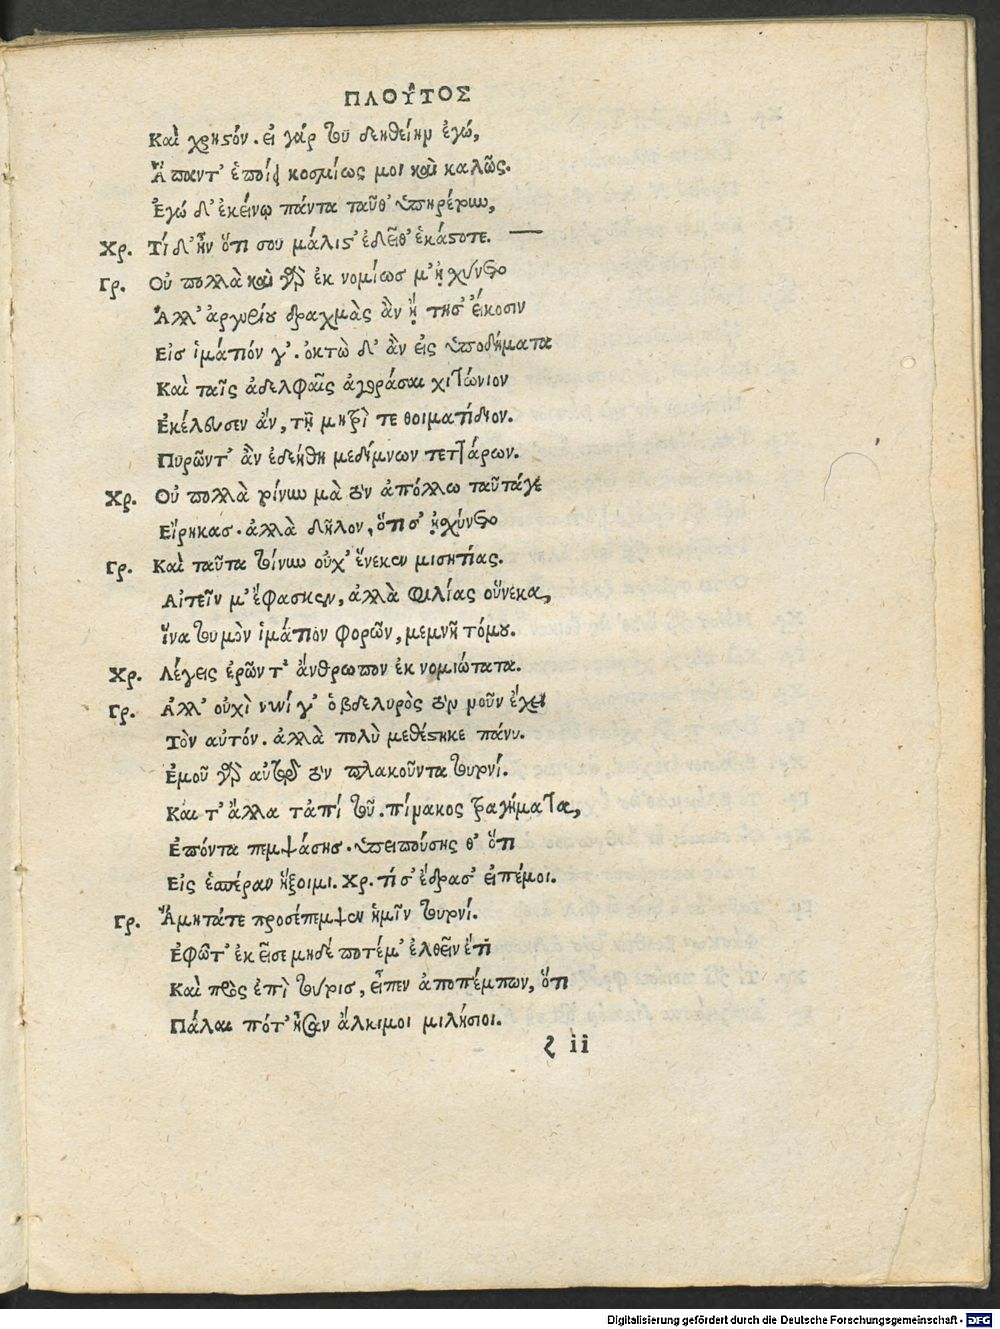 ΠΛΟΥ͂ΤΟΣ
Καὶ χρηστόν. εἰ γάρ του δεηθείην ἐγώ,
Ἅπαντ' ἐποίει κοσμίως μοι καὶ καλῶς.
Ἐγώ δ' ἐκείνῳ πάντα ταῦθ' ὑπηρέτουν,
Χρ. Τί δ' ἦν ὅτι σου μάλιστ' ἐδεῖθ' ἑκάστοτε. —
Γρ. Οὐ πολλὰ καὶ γὰρ ἐκ νομίωσ μ' ᾐσχύνετο
Ἀλλ' ἀργυρίου δραχμὰς ἂν ᾔτησ' εἴκοσιν
Εἰσ ἱμάτιόν γ'. ὀκτὼ δ' ἂν εἰς ὑποδήματα
Καὶ ταῖς ἀδελφαῖς ἀγοράσαι χιτώνιον
Ἐκέλευσεν ἄν, τῇ μητρὶ τε θοιματίδιον.
Πυρῶντ' ἂν ἐδεήθη μεδίμνων τεττάρων.
Χρ. Οὐ πολλὰ τίνυν μὰ τὸν ἀπόλλω ταῦτάγε
Εἴρηκασ. ἀλλὰ δῆλον, ὅτι σ' ᾐσχύνετο
Γρ. Καὶ ταῦτα τίνυν οὐχ' ἕνεκεν μισητίας.
Αἰτεῖν μ' ἔφασκεν, ἀλλὰ φιλίας οὕνεκα,
ἵνα τουμὸν ἱμάτιον φορῶν, μεμνῇ τόμου.
Χρ. Λέγεις ἐρῶντ' ἄνθρωπον ἐκ νομιώτατα.
Γρ. Ἀλλ' οὐχὶ νυνί γ' ὁ βδελυρὸς τὸν μοῦν ἔχει
Τὸν αὐτόν. ἀλλὰ πολὺ μεθέστηκε πάνυ.
Ἐμοῦ γὰρ αὐτῷ τὸν πλακοῦντα τουτονί.
Καὶ τ' ἄλλα τἀπί τοῦ. πίνακος τραγήματα,
Ἐπόντα πεμψάσησ. ὑπειπούσης θ' ὅτι
Εἰς ἑσπέραν ἥξοιμι. Χρ. τί σ' ἔδρασ' εἰπέμοι.
Γρ. Ἄμητάτε προσέπεμψεν ἡμῖν τουτονί.
Ἐφῶτ' ἐκ εῖσε μηδέ ποτέμ' ἐλθεῖν ἔτι
Καὶ πρὸς ἐπὶ τούτοισ, εἶπεν ἀποπέμπων, ὅτι
Πάλαι πότ' ἦσαν ἄλκιμοι μιλήσιοι.
ζ ii
Digitalisierung gefördert durch die Deutsche Forschungsgemeinschaft - DFG